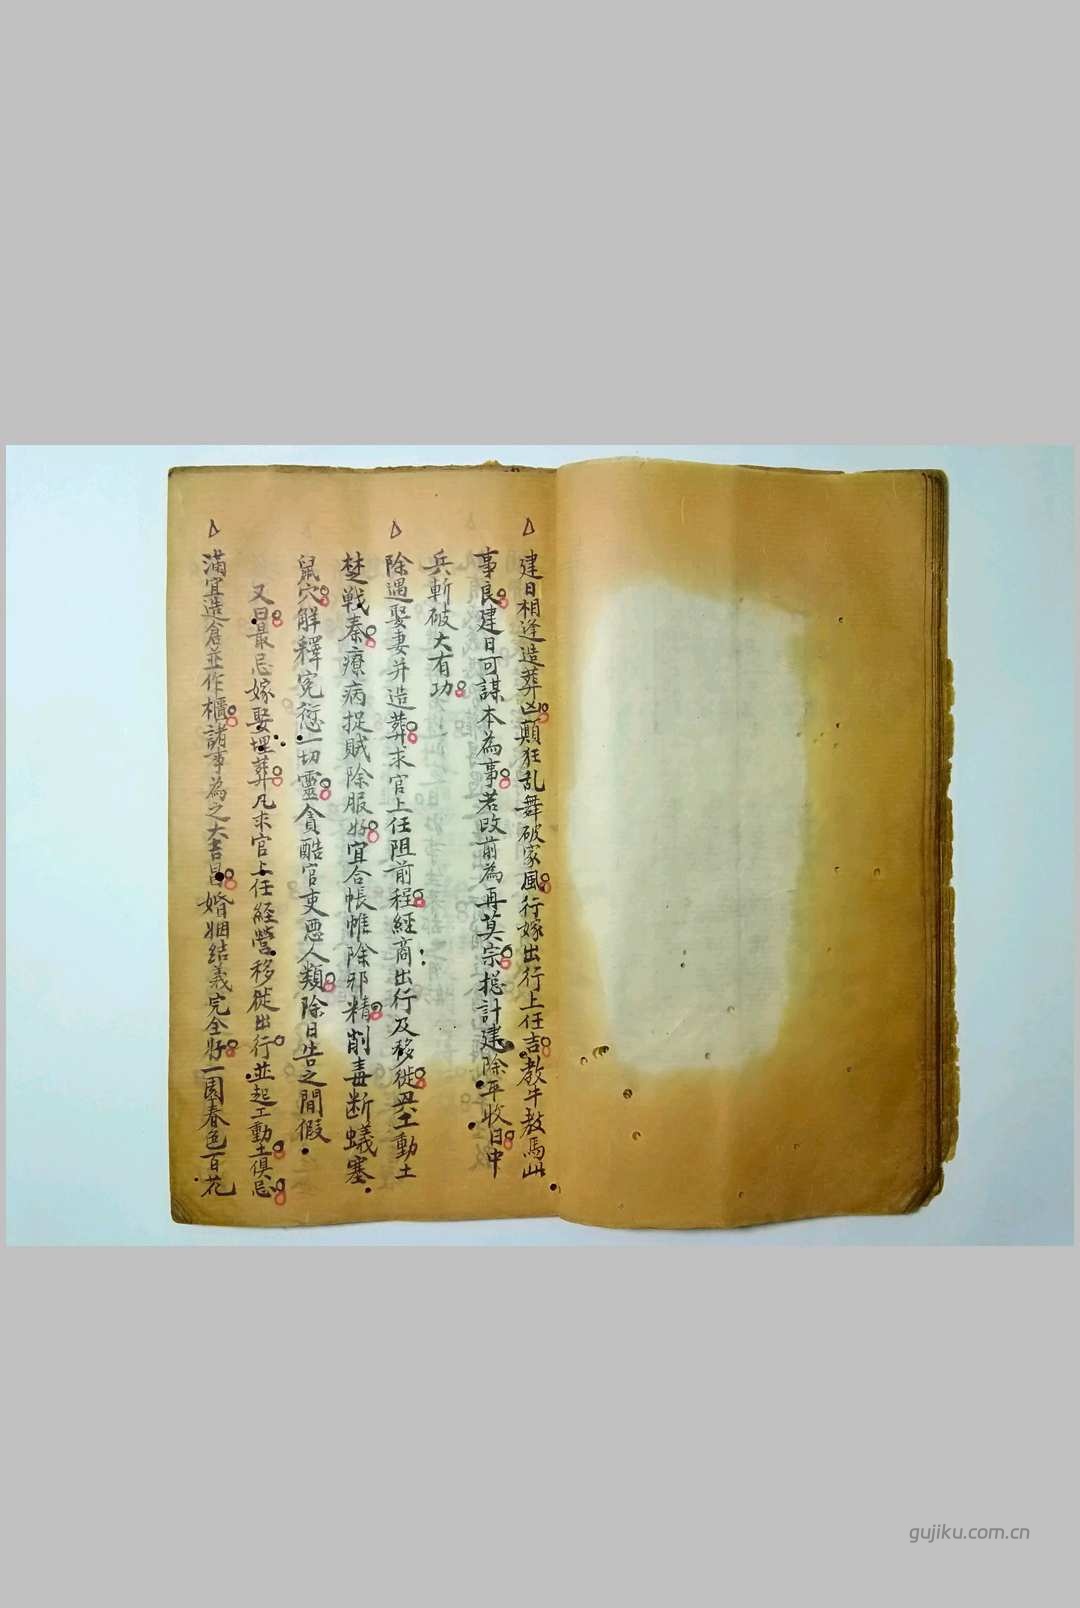 建日相逢造葬凶顛狂乱舞破家風行嫁出行上任吉教牛教馬此
事良建日可謀本為事若改前為再莫宗揔計建除平收日中
兵斬破大有功
除遇娶妻并造葬求官上任阻前程經商出行及移徙與工動土
楚戰秦療病捉賊除服好宜合帳帷除邪精削毒断蟻塞
鼠穴解釋冤愆一切靈貪酷官吏惡人類除日告之閒假
又曰最忌嫁娶埋葬凡求官上任經營移徙出行並起工動土俱忌
滿宜造倉並作櫃諸事為之大吉昌婚姻結義完全好一園春色百花
gujiku.com.cn